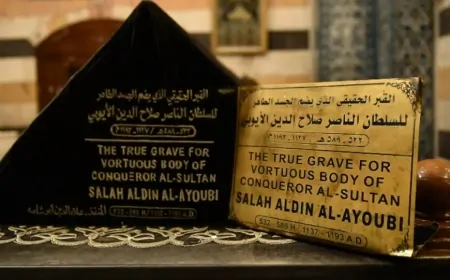 القبر الحقيقي الذي يضم الجسد الطاهر
للسلطان الناصر صلاح الدين الأيوبي
٥٣٢ - ٥٨٩هـ - ١١٣٧ - ١١٩٣م
THE TRUE GRAVE FOR
VORTUOUS BODY OF
CONQUEROR AL-SULTAN
SALAH ALDIN AL-AYOUBI
532 - 589 H / 1137 - 1193 A.D
القبر الحقيقي الذي يضم الجسد الطاهر
للسلطان الناصر صلاح الدين الأيوبي
٥٣٢ - ٥٨٩هـ - ١١٣٧ - ١١٩٣م
THE TRUE GRAVE FOR
VORTUOUS BODY OF
CONQUEROR AL-SULTAN
SALAH ALDIN AL-AYOUBI
532 - 589 H / 1137 - 1193 A.D